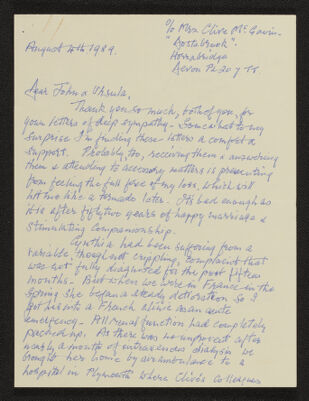 c/o Mrs Clive McGavin
August 10th 1989.
"Dostabrook".
Horrabridge
Devon PL20 7TT.
Dear John & Ursula,
Thank you so much, both of you, for
your letters of deep sympathy - Somewhat to my
surprise I'm finding these letters a comfort &
support. Probably too, receiving them & answering
them & attending to accessory matters is preventing
from feeling the full force of my loss, which will
hit me like a tornado later. It's bad enough as
it is after fifty two years of happy marriage &
stimulating companionship.
Cynthia had been suffering from a
variable, though not crippling, complaint that
was not fully diagnosed for the past fifteen
months - But when we were in France in the
Spring she began a steady deterioration so I
got her into a French clinic as an acute
emergency - All renal function had completely
packed up. As there was no improvement after
nearly a month of intravenous dialysis we
brought her home by air ambulance to a
hospital in Plymouth where Clive's colleagues